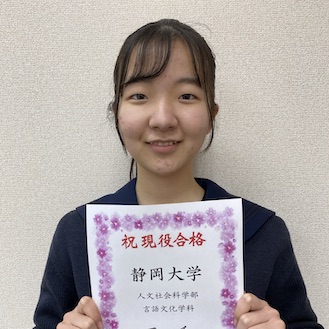 祝現役合格
静岡大学
人文社会科学部
言語文化学科